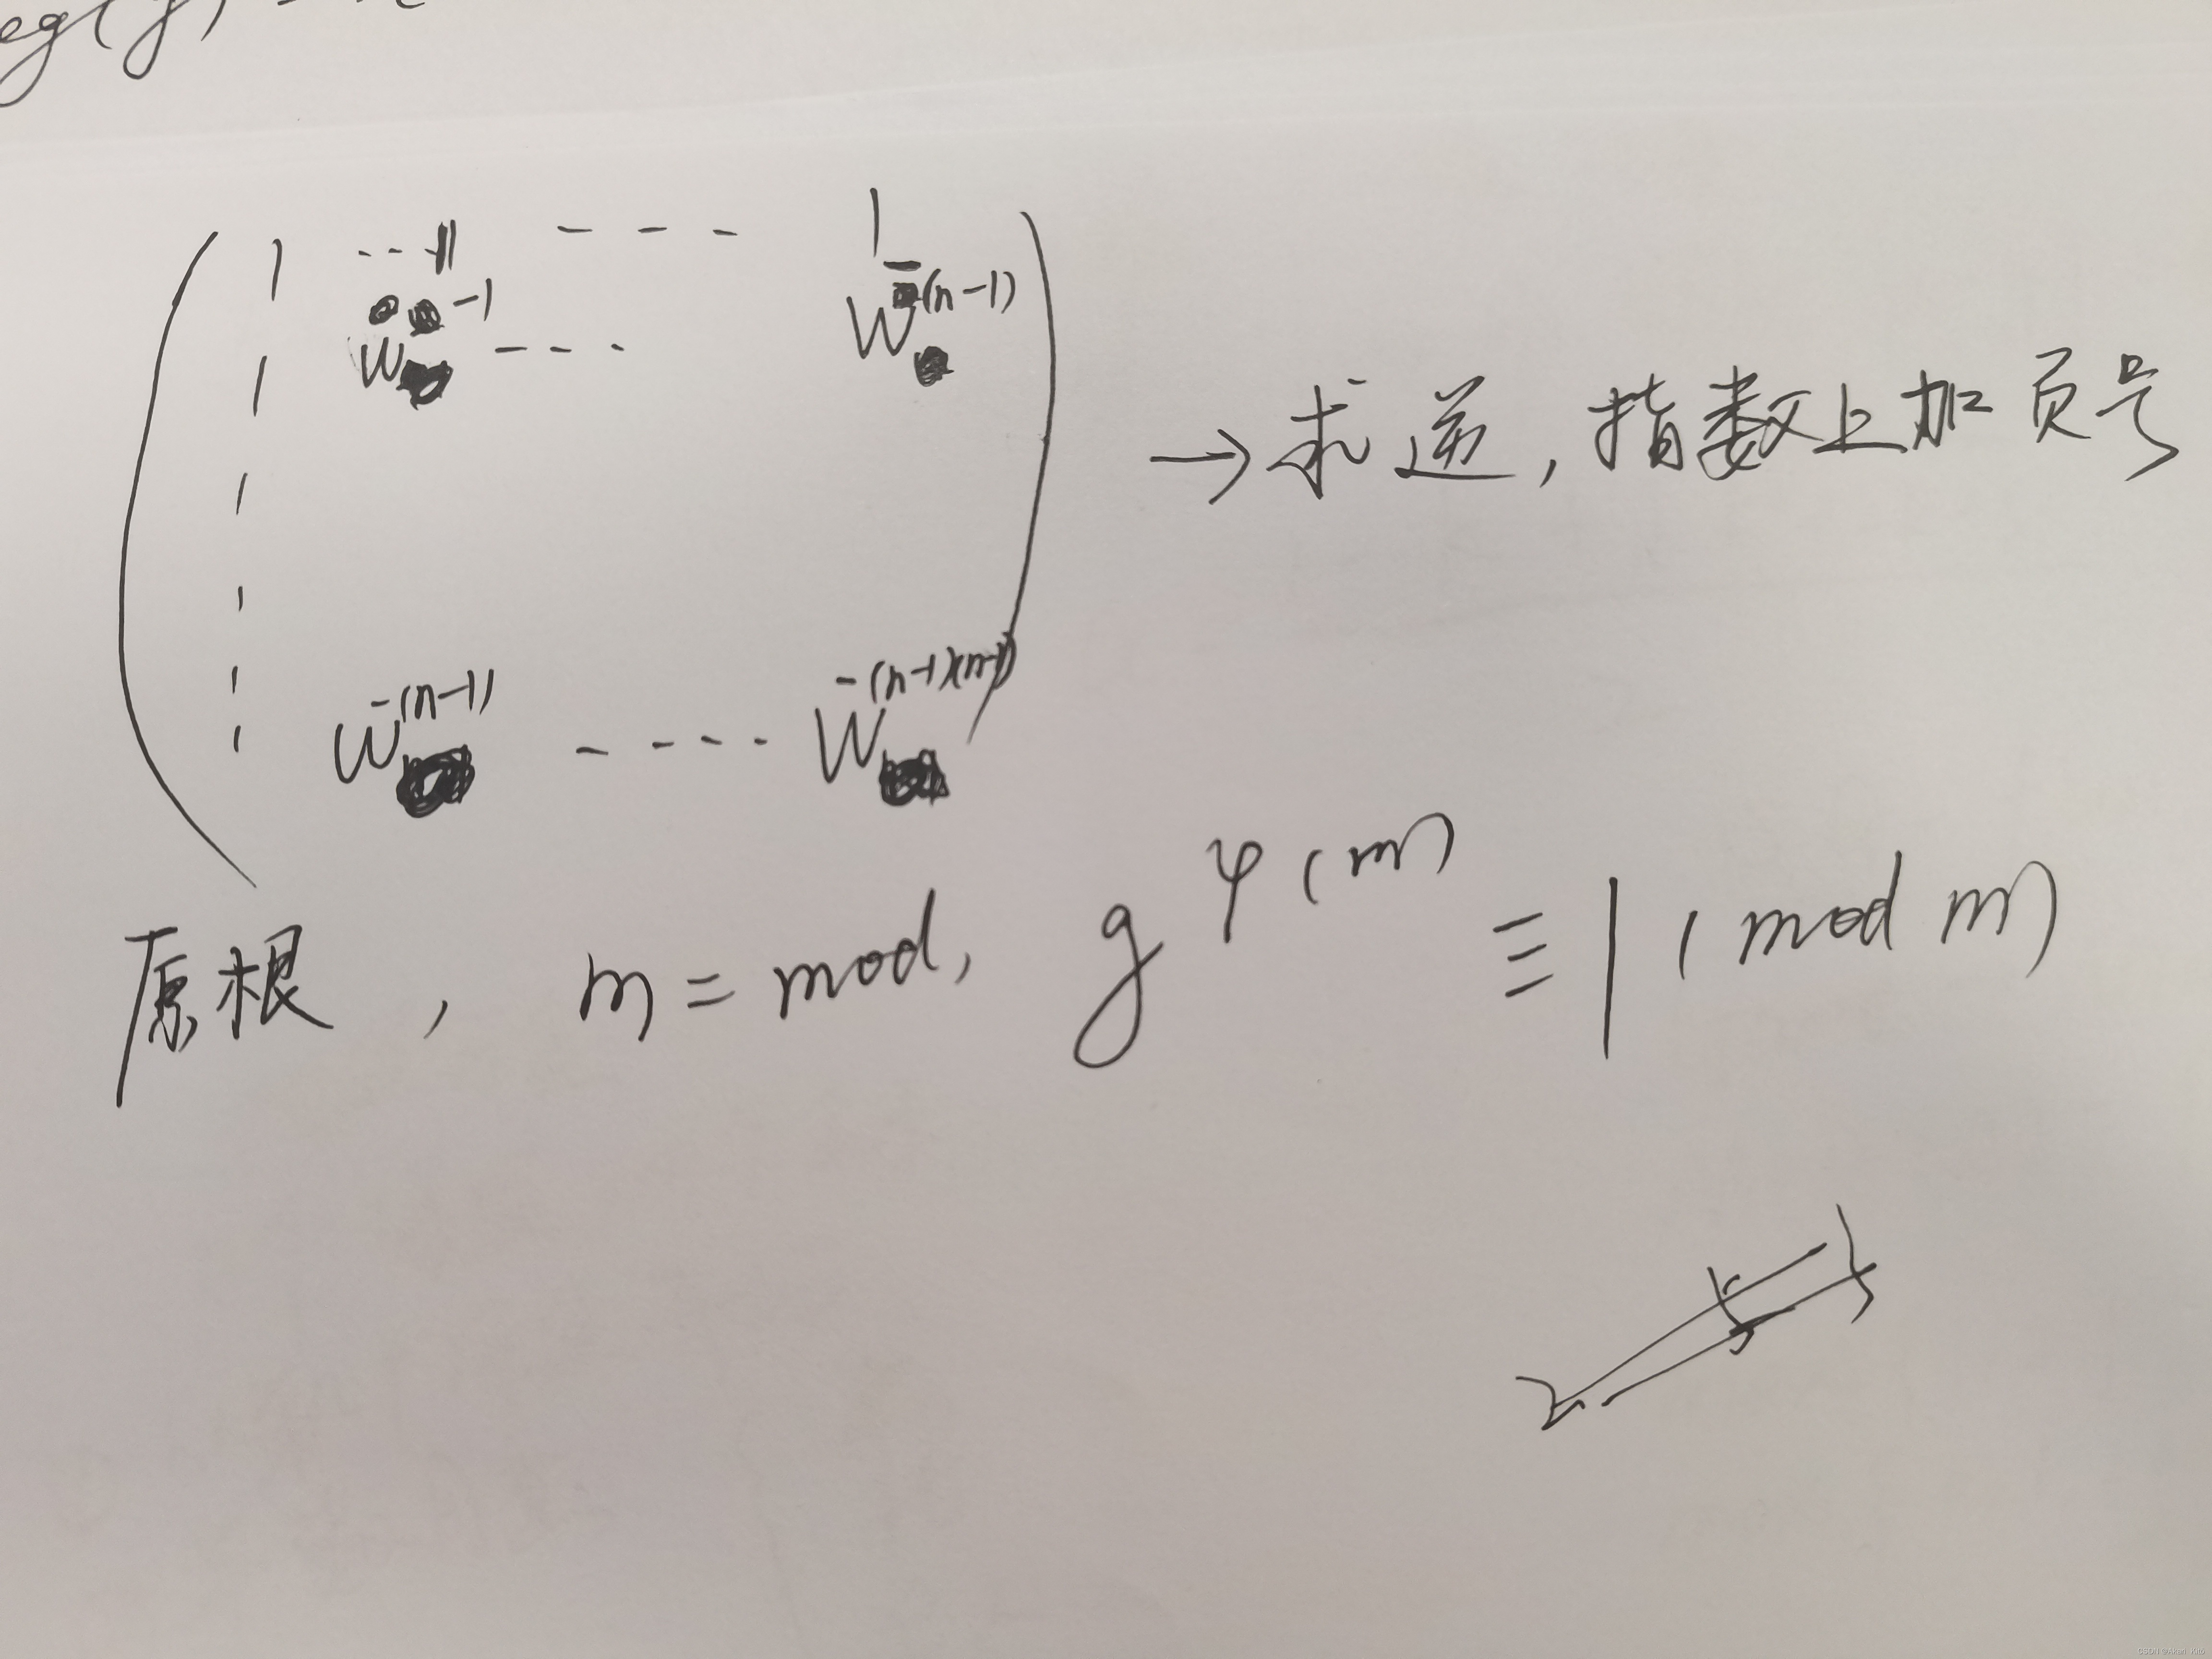 eg(y)
1 -- 1 --- 1
1 W^-1 --- W^-(n-1)
W^-(n-1) ---- W^-(n-1)(n-1)
→求逆,指数上加负号
原根, m = mod, g^φ(m) ≡ 1 (mod m)